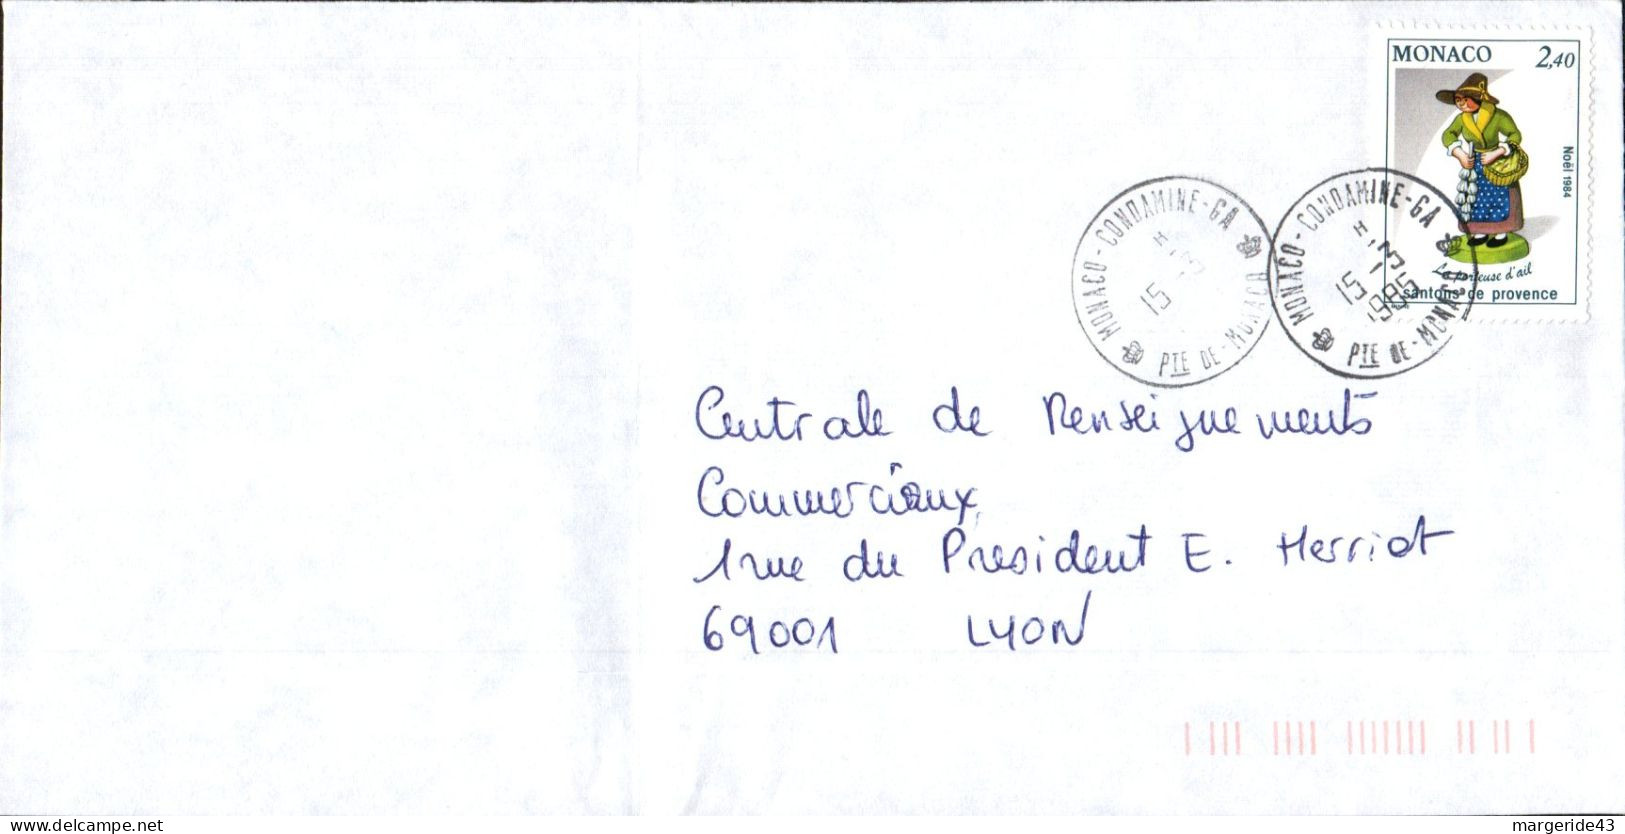 MONACO 2,40
Noël 1984
La porteuse d'ail
santons de provence
MONACO-CONDAMINE-GA
15
PTE DE-MONACO
MONACO-CONDAMINE-GA
15 1
1985
PTE DE-MONACO
Centrale de Renseignements
Commerciaux
1 rue du President E. Herriot
69001 LYON
www.delcampe.net
margeride43